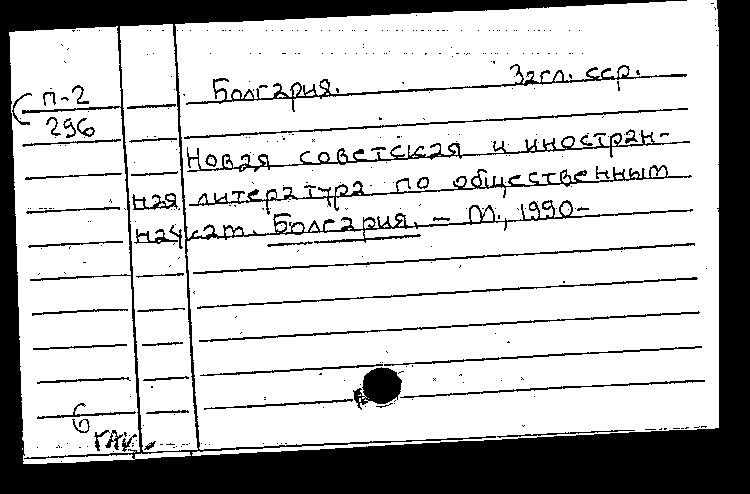 П-2
296
Болгария. Загл. сер.
Новая советская и иностран-
ная литература по общественным
наукам. Болгария. – М., 1990-
6